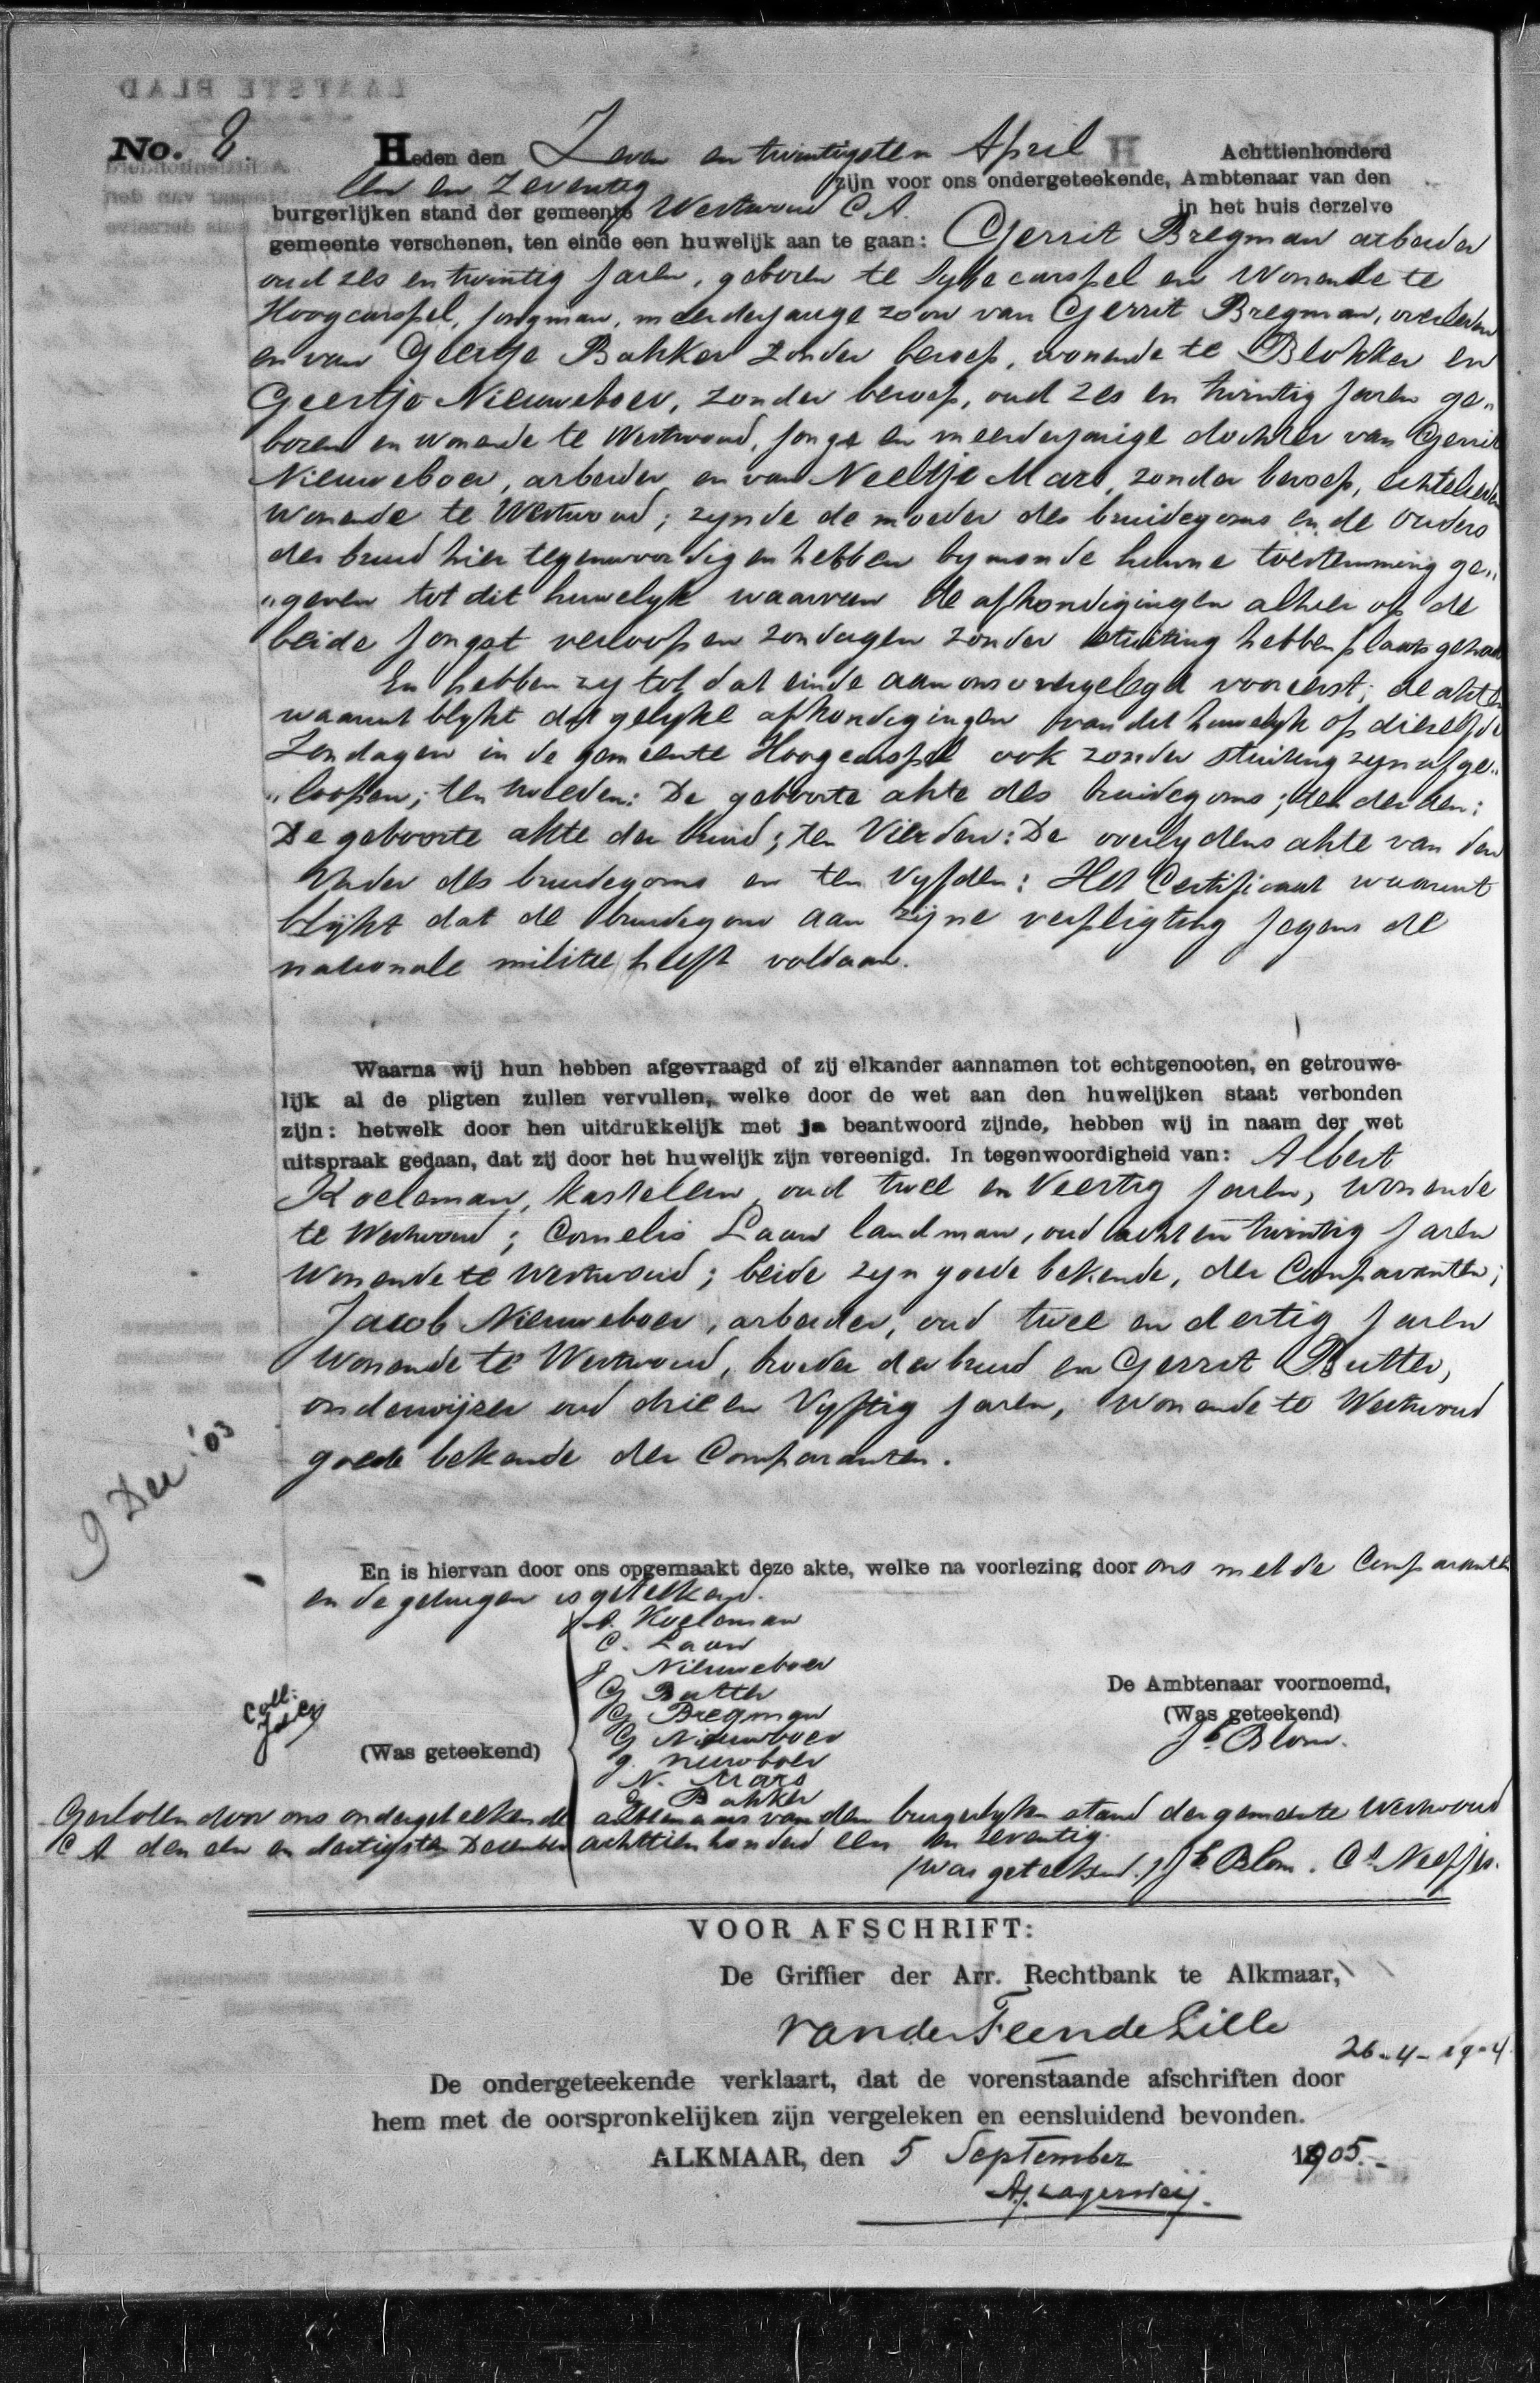 No. 8.
Heden den Zeven en twintigsten April Achttienhonderd
een en Zeventig zijn voor ons ondergeteekende, Ambtenaar van den
burgerlijken stand der gemeente Westwoud C A. in het huis derzelve
gemeente verschenen, ten einde een huwelijk aan te gaan: Gerrit Bregman arbeider
oud zes en twintig jaren, geboren te Sybecarspel en Wonende te
Hoogcarspel, jongman, meerderjarige zoon van Gerrit Bregman, overleden
en van Geertje Bakker zonder beroep, wonende te Blokker en
Geertje Nieuweboer, zonder beroep, oud zes en twintig jaren ge„
boren en wonende te Westwoud, jonge en meerderjarige dochter van Gerrit
Nieuweboer, arbeider en van Neeltje Mars, zonder beroep, echtelieden
wonende te Westwoud; zynde de moeder des bruidegoms en de ouders
der bruid hier tegenwoordig en hebben by monde hunne toestemming ge„
„geven tot dit huwelyk waarvan de afkondigingen alhier op de
beide jongst verloopen zondagen zonder stuiting hebben plaats gehad
En hebben zy tot dat einde aan ons overgelegd vooreerst; de akte
waaruit blykt dat gelyke afkondigingen van dit huwelyk op dieselfde
Zondagen in de gemeente Hoogcarspel ook zonder stuiting zyn afge„
„loopen; ten tweeden: De geboorte akte des bruidegoms; ten derden:
De geboorte akte der bruid; ten Vierden: De overlydens akte van den
Vader des bruidegoms en ten Vyfden: Het Certificaat waaruit
blijkt dat de bruidegom aan zijne verpligting jegens de
nationale militie heeft voldaan.
Waarna wij hun hebben afgevraagd of zij elkander aannamen tot echtgenooten, en getrouwe-
lijk al de pligten zullen vervullen, welke door de wet aan den huwelijken staat verbonden
zijn: hetwelk door hen uitdrukkelijk met ja beantwoord zijnde, hebben wij in naam der wet
uitspraak gedaan, dat zij door het huwelijk zijn vereenigd. In tegenwoordigheid van: Albert
Koeleman, kastelein, oud twee en Veertig jaren, wonende
te Westwoud; Cornelis Laan landman, oud acht en twintig jaren
Wonende te Westwoud; beide zyn goede bekende, der Comparanten;
Jacob Nieuweboer, arbeider, oud twee en dertig jaren
Wonende te Westwoud, broeder der bruid en Gerrit Butter,
onderwijzer oud drie en Vyftig jaren, Wonende te Westwoud
goede bekende der Comparanten.
9 Dec '03
En is hiervan door ons opgemaakt deze akte, welke na voorlezing door ons met de Comparanten
en de getuigen is geteekend.
A. Koeleman
C. Laan
J Nieuweboer
G Butter
G Bregman
G Nieuwboer
g. nieuwboer
N. Mars
G Bakker
Coll:
(Was geteekend)
De Ambtenaar voornoemd,
(Was geteekend)
Jb Blom.
Gesloten door ons ondergeteekende ambtenaar van den burgerlyken stand der gemeente Westwoud
C A den een en dertigsten December achttien honderd een en zeventig.
(was geteekend.) Jb Blom. Cs Neefjes.
VOOR AFSCHRIFT:
De Griffier der Arr. Rechtbank te Alkmaar,
van der Feen de Lille
26-4-19-4
De ondergeteekende verklaart, dat de vorenstaande afschriften door
hem met de oorspronkelijken zijn vergeleken en eensluidend bevonden.
ALKMAAR, den 5 September 1905.-
A.J. Lagerweij.